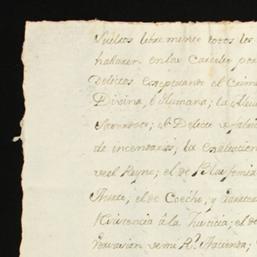 sueltos libremente todos los
hallaren en las Carceles por
delitos exceptuando el Crimen
Divina, ó Humana; la Alev
Sacerdote; el Delito de fabric
de incendiario; la extraccion
del Reyno; el de Blasfemia
Hurto, el de Coecho, y Barater
Resistencia á la Justicia; el d
versacion de mi Rl. Hacienda;